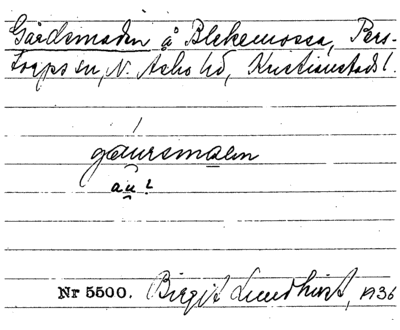 Gårdsmaden å Blekemossa, Pers-
torps sn, N. Åsbo hd, Kristianstads l.
gáursmaden
au?
Nr 5500. Birgit Lundkvist, 1936